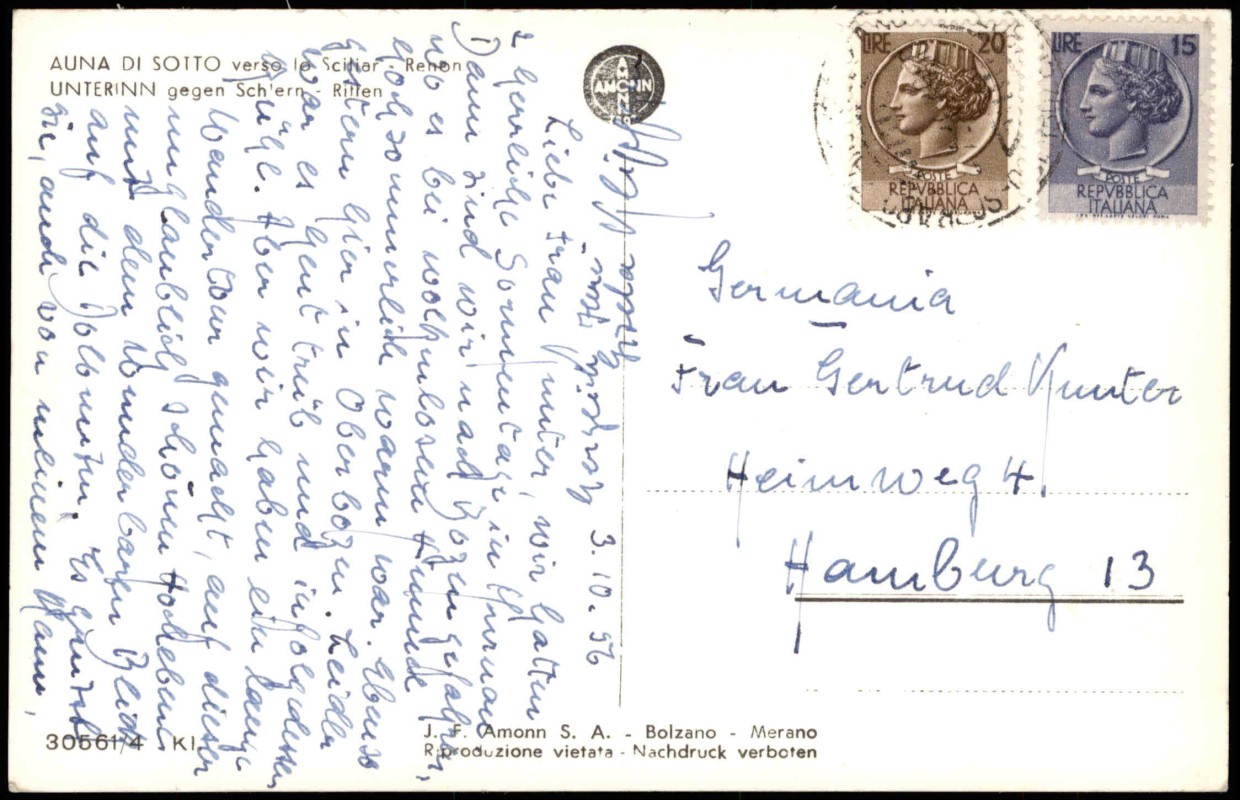 AUNA DI SOTTO verso lo Sciliar - Renon
UNTERINN gegen Schlern - Ritten
AMONN
LIRE 20
POSTE
REPVBBLICA
ITALIANA
LIRE 15
POSTE
REPVBBLICA
ITALIANA
3.10.56
Liebe Frau Gunter, wir hatten
herrliche Sonnentage in Meran
Dann sind wir nach Bozen gefahren,
wo es bei wolkenlosem Himmel
hochsommerlich warm war. Ebenso
gestern hier in Oberbozen. Leider
war es heut trüb und infolgedessen
kühl. Aber wir haben eine lange
Wanderung gemacht, auf dieser
unglaublich schönen Hochebene
mit dem wunderbaren Blick
auf die Dolomiten. Es grüsst
Sie, auch von meinem Mann,
Germania
Frau Gertrud Gunter
Heimweg 4.
Hamburg 13
30561/4 Kl.
J. F. Amonn S. A. - Bolzano - Merano
Riproduzione vietata - Nachdruck verboten